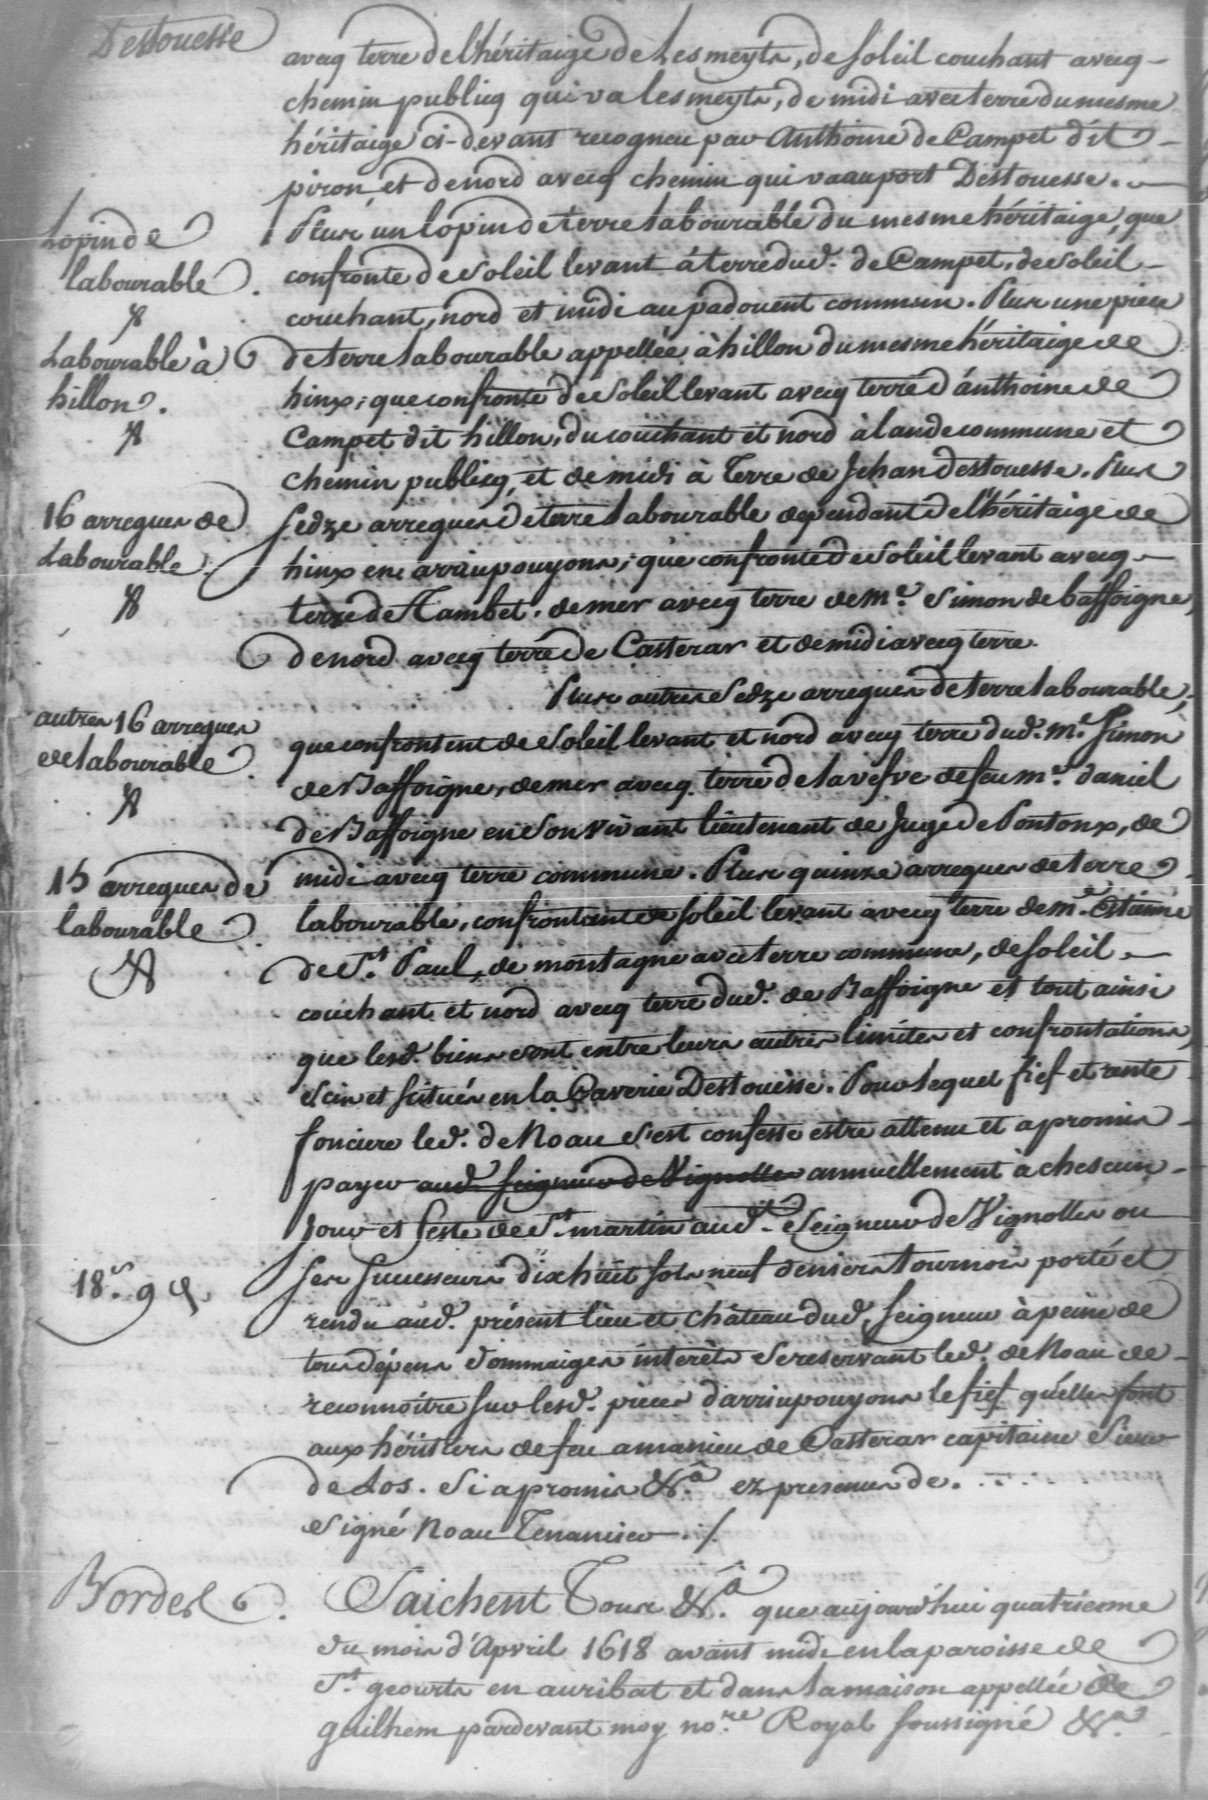 Destouesse
avecq terre de l'héritaige de Lesmeyts, de soleil couchant avecq
chemin publicq qui va a lesmeyts, de midi avec terre du mesme
héritaige ci-devant recogneu par Anthoine de Campet dit
piron, et de nord avecq chemin qui va au port Destouesse.
Lopin de
labourable
Plus un lopin de terre labourable du mesme héritaige, que
confronte de soleil levant à terre dud. de Campet, de soleil
couchant, nord et midi au padouent commun. Plus une piece
Labourable à
hillon.
de terre labourable appellée à hillon du mesme héritaige de
hinx, que confronte de soleil levant avecq terre d'anthoine de
Campet dit hillon, du couchant et nord à lande commune et
chemin publicq, et de midi à terre de Jehan Destouesse. Plus
16 arregues de
Labourable
sedze arregues de terre labourable dependant de l'héritaige de
hinx en arriupouyons, que confronte de soleil levant avecq
terre de Tambet, de mer avecq terre de me. Simon de baffoigne,
de nord avecq terre de Casterar et de midi avecq terre
autres 16 arregues
de labourable
Plus autres sedze arregues de terre labourable,
que confrontent de soleil levant et nord avecq terre dud. me. Simon
de Baffoigne, de mer avecq terre de la vefve de feu me. daniel
de Baffoigne en son vivant lieutenant de Juge de Pontonx, de
15 arregues de
labourable
midi avecq terre commune. Plus quinze arregues de terre
labourable, confrontante de soleil levant avecq terre de me. Estienne
de St. Paul, de montagne avec terre commune, de soleil
couchant et nord avecq terre dud. de Baffoigne et tout ainsi
que lesd. biens sont entre leurs autres limites et confrontations,
scis et scitués en la Caverie Destouesse. Pour lequel fief et rente
fonciere led. de Noau s'est confesse estre attenu et a promis
payer aud. seigneur de Vignolles annuellement à chescun
jour et feste de St. martin aud. Seigneur de Vignolles ou
18s. 9d.
ses successeurs dix huit sols neuf deniers tournois porté et
rendu aud. présent lieu et château dud. seigneur à peine de
tous dépens dommaiges interêts se reservant led. de Noau de
reconnoître sur lesd. pieces d'arriupouyons le fief qu'elles font
aux héritiers de feu amanieu de Casterar capitaine Sieur
de Los. Si a promis &a. ez presences de. . . . .
Signé Noau Tenancier ./.
Bordes.
Saichent Tous &a. que aujourd'hui quatriesme
du mois d'Apvril 1618 avant midi en la paroisse de
St. geours en auribat et dans la maison appellée de
guilhem pardevant moy nore. Royal soussigné &a.